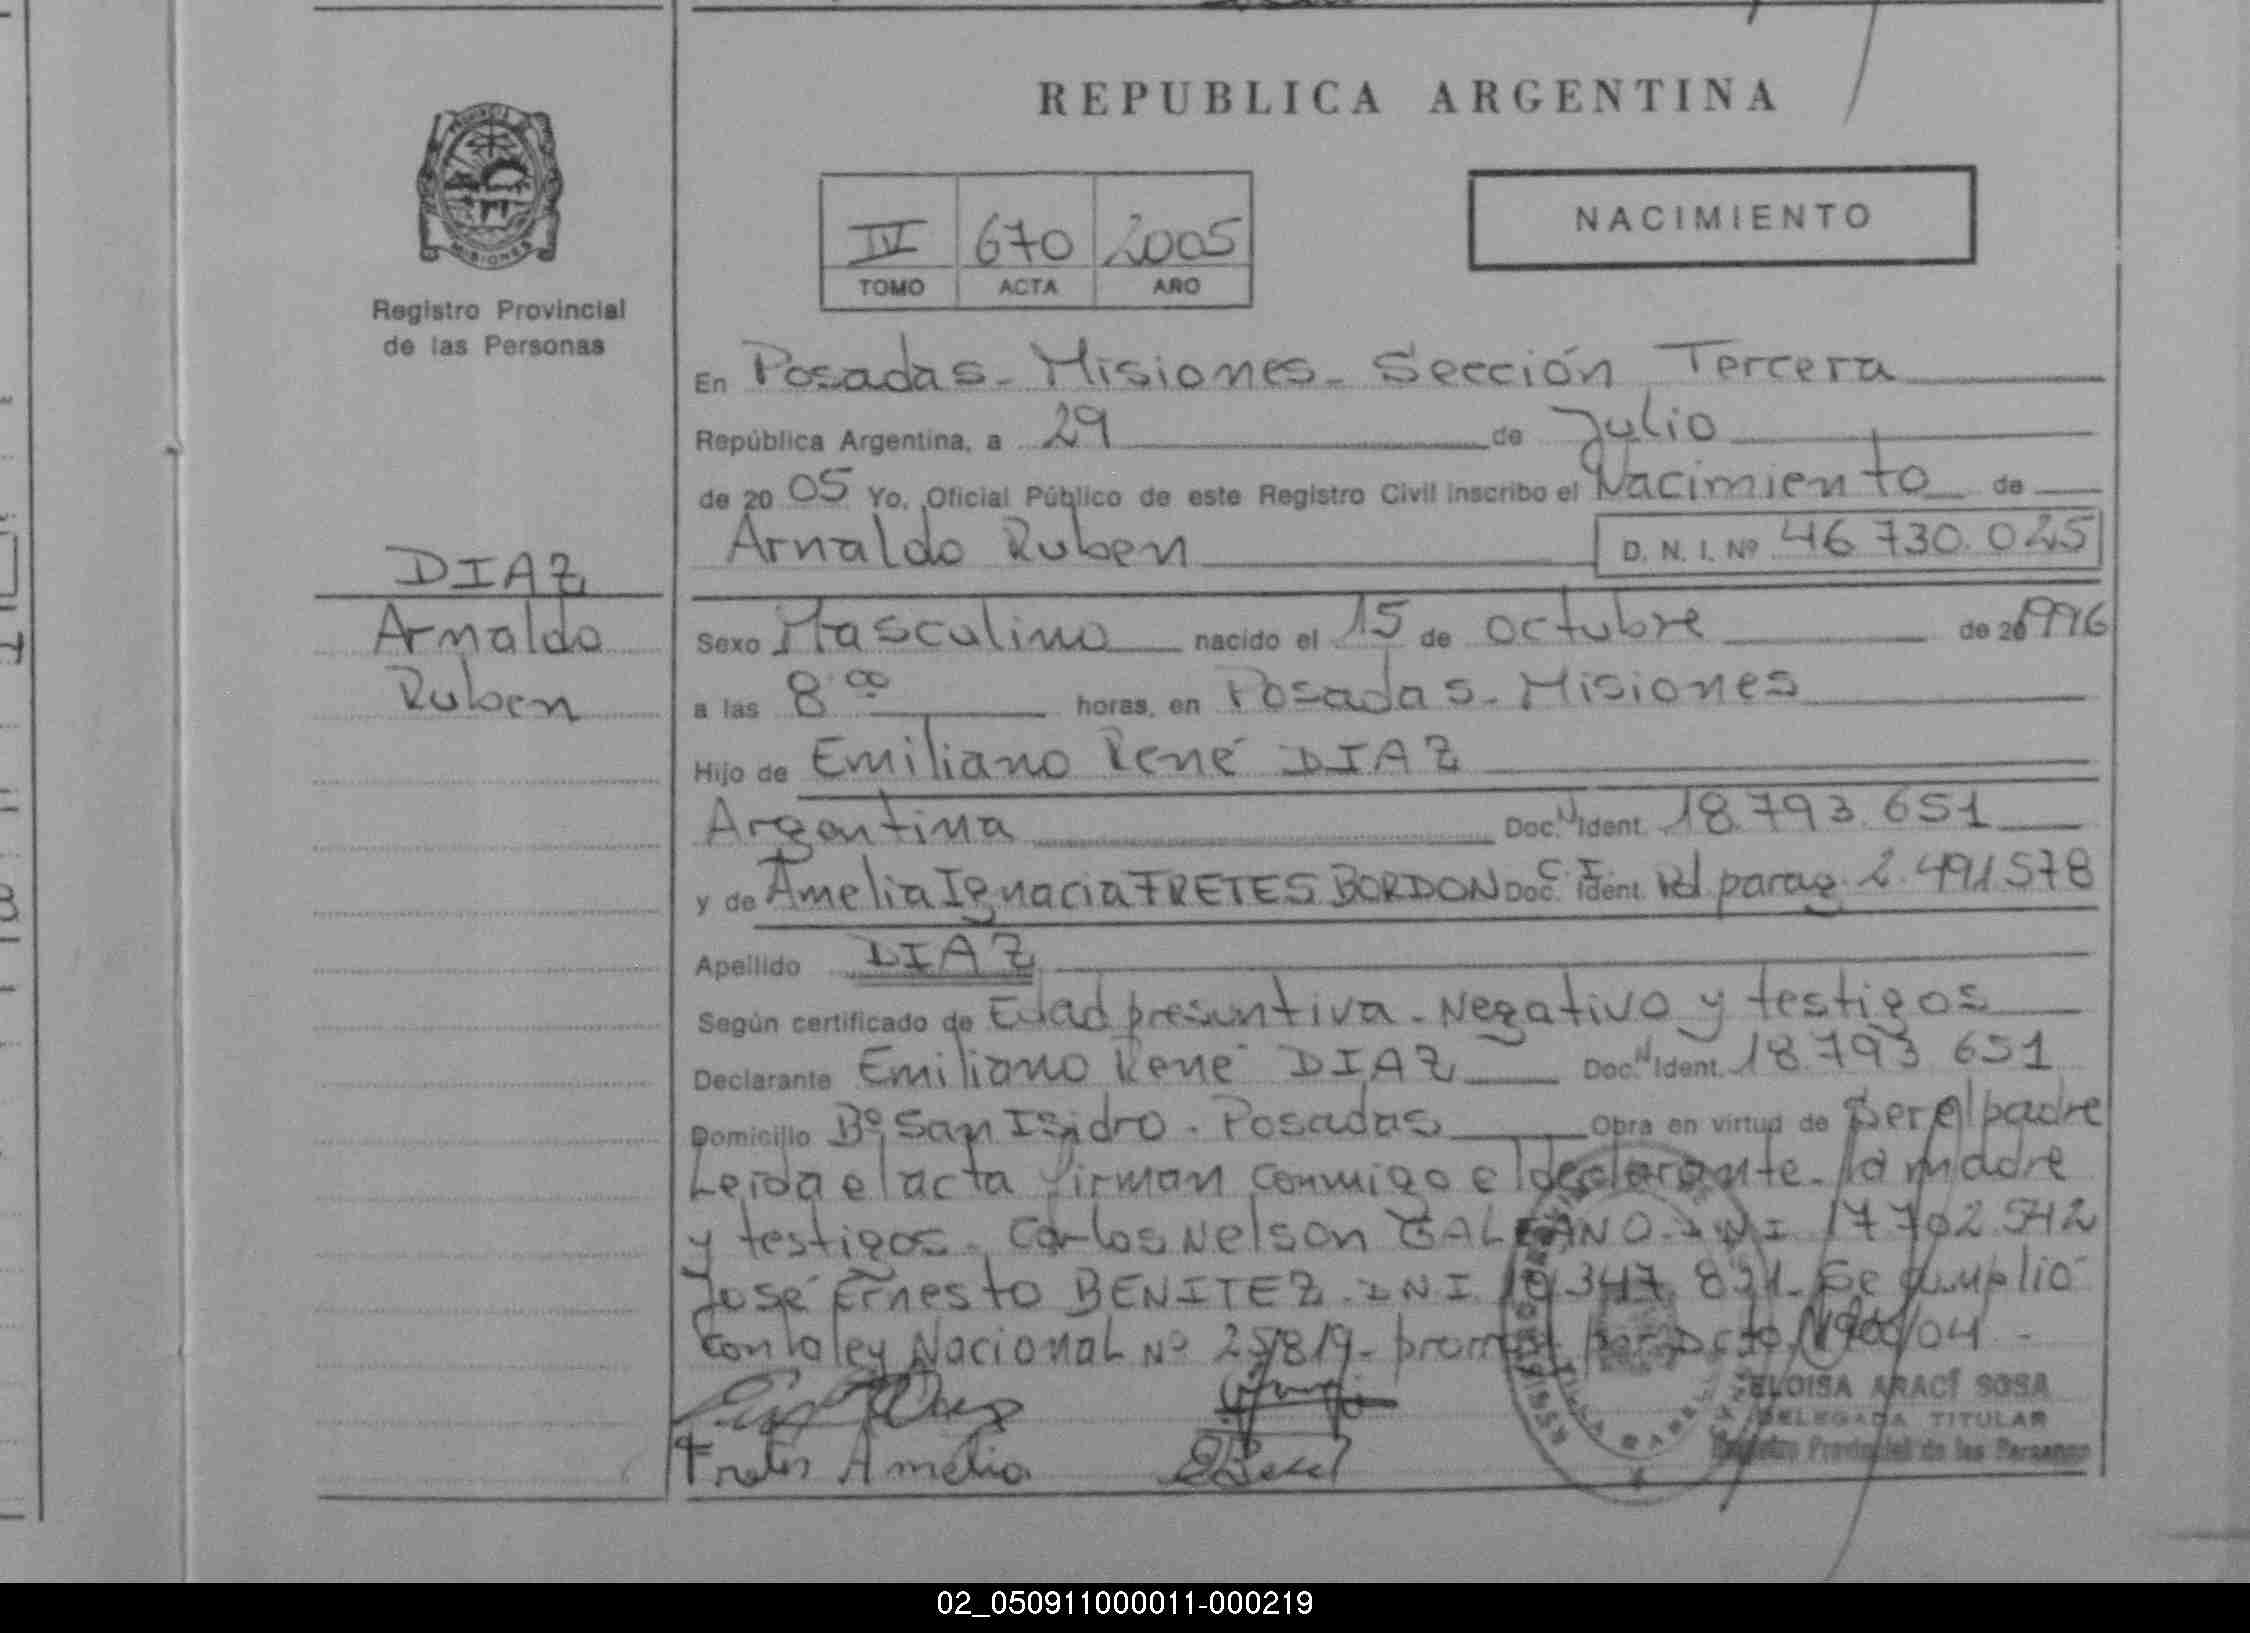 REPUBLICA ARGENTINA
PROVINCIA DE
MISIONES
Registro Provincial
de las Personas
IV 670 2005
TOMO ACTA AÑO
NACIMIENTO
En Posadas - Misiones - Sección Tercera
República Argentina, a 29 de Julio
de 20 05 Yo, Oficial Público de este Registro Civil inscribo el Nacimiento de
Arnaldo Ruben D. N. I. Nº 46.730.025
DIAZ
Arnaldo
Ruben
Sexo Masculino nacido el 15 de octubre de 20 1996
a las 8 00 horas, en Posadas - Misiones
Hijo de Emiliano René DIAZ
Argentina Doc. N Ident. 18.793.651
y de Amelia Ignacia FRETES BORDON Doc. C. I. Ident. Pol parag. 2.491578
Apellido DIAZ
Según certificado de Edad presuntiva - Negativo y testigos
Declarante Emiliano René DIAZ Doc. N Ident. 18.793 651
Domicilio Bº San Isidro - Posadas Obra en virtud de ser el padre
Leida el acta firman conmigo el declarante - la madre
y testigos - Carlos Nelson GALEANO - DNI 17702.542
José Ernesto BENITEZ - DNI 347 821 - Se cumplió
con la ley Nacional Nº 25819 - por Dcto /04 -
ELOISA ARACÍ SOSA
DELEGADA TITULAR
Registro Provincial de las Personas
Fretes Amelia
02_050911000011-000219